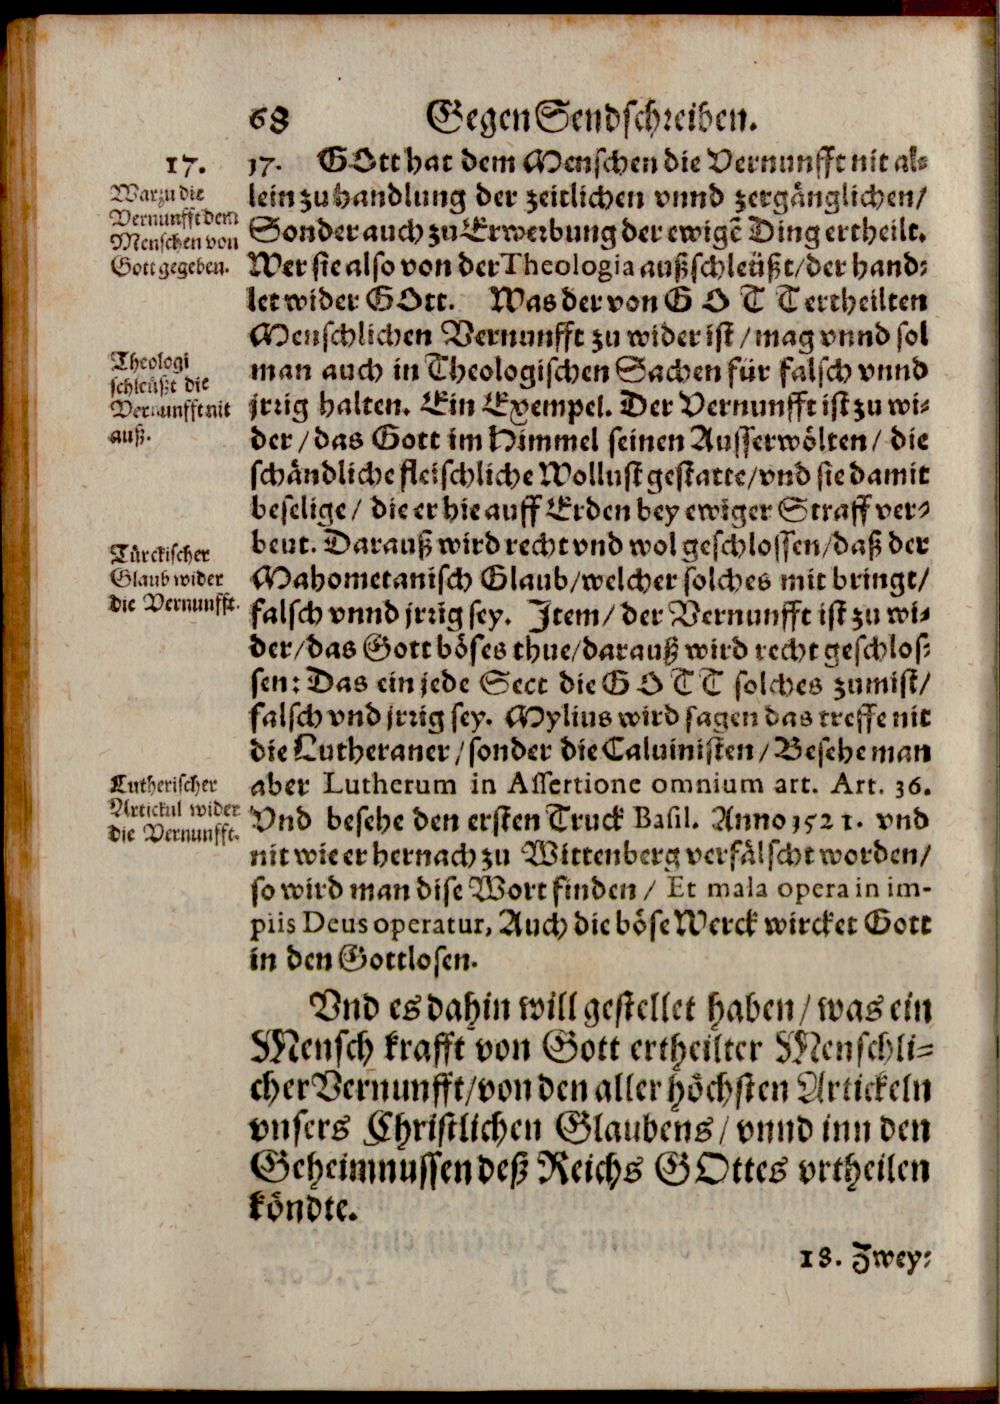 68 Gegen Sendschreiben.
17.
Warzu die
Vernunfft dem
Menschen von
Gott gegeben.
Theologi
schleüßt die
Vernunfft nit
auß.
Türckischer
Glaub wider
die Vernunfft.
Lutherischer
Artickul wider
die Vernunfft.
17. GOtt hat dem Menschen die Vernunfft nit al-
lein zu handlung der zeitlichen vnnd zergänglichen/
Sonder auch zu Erwerbung der ewigẽ Ding ertheilt.
Wer sie also von der Theologia außschleüßt/der hand-
let wider GOtt. Was der von G O T T ertheilten
Menschlichen Vernunfft zu wider ist/mag vnnd sol
man auch in Theologischen Sachen für falsch vnnd
jrrig halten. Ein Exempel. Der Vernunfft ist zu wi-
der/das Gott im Himmel seinen Ausserwölten/die
schändliche fleischliche Wollust gestatte/vnd sie damit
beselige/die er hie auff Erden bey ewiger Straff ver-
beut. Darauß wird recht vnd wol geschlossen/daß der
Mahometanisch Glaub/welcher solches mit bringt/
falsch vnnd jrrig sey. Item/der Vernunfft ist zu wi-
der/das Gott böses thue/darauß wird recht geschlos-
sen: Das ein jede Sect die G O T T solches zumist/
falsch vnd jrrig sey. Mylius wird sagen das treffe nit
die Lutheraner/sonder die Caluinisten/Besehe man
aber Lutherum in Assertione omnium art. Art. 36.
Vnd besehe den ersten Truck Basil. Anno 1521. vnd
nit wie er hernach zu Wittenberg verfälscht worden/
so wird man dise Wort finden/ Et mala opera in im-
piis Deus operatur, Auch die böse Werck wircket Gott
in den Gottlosen.
Vnd es dahin will gestellet haben/was ein
Mensch krafft von Gott ertheilter Menschli-
cher Vernunfft/von den aller höchsten Artickeln
vnsers Christlichen Glaubens/vnnd inn den
Geheimnussen deß Reichs GOttes vrtheilen
köndte.
18. Zwey-